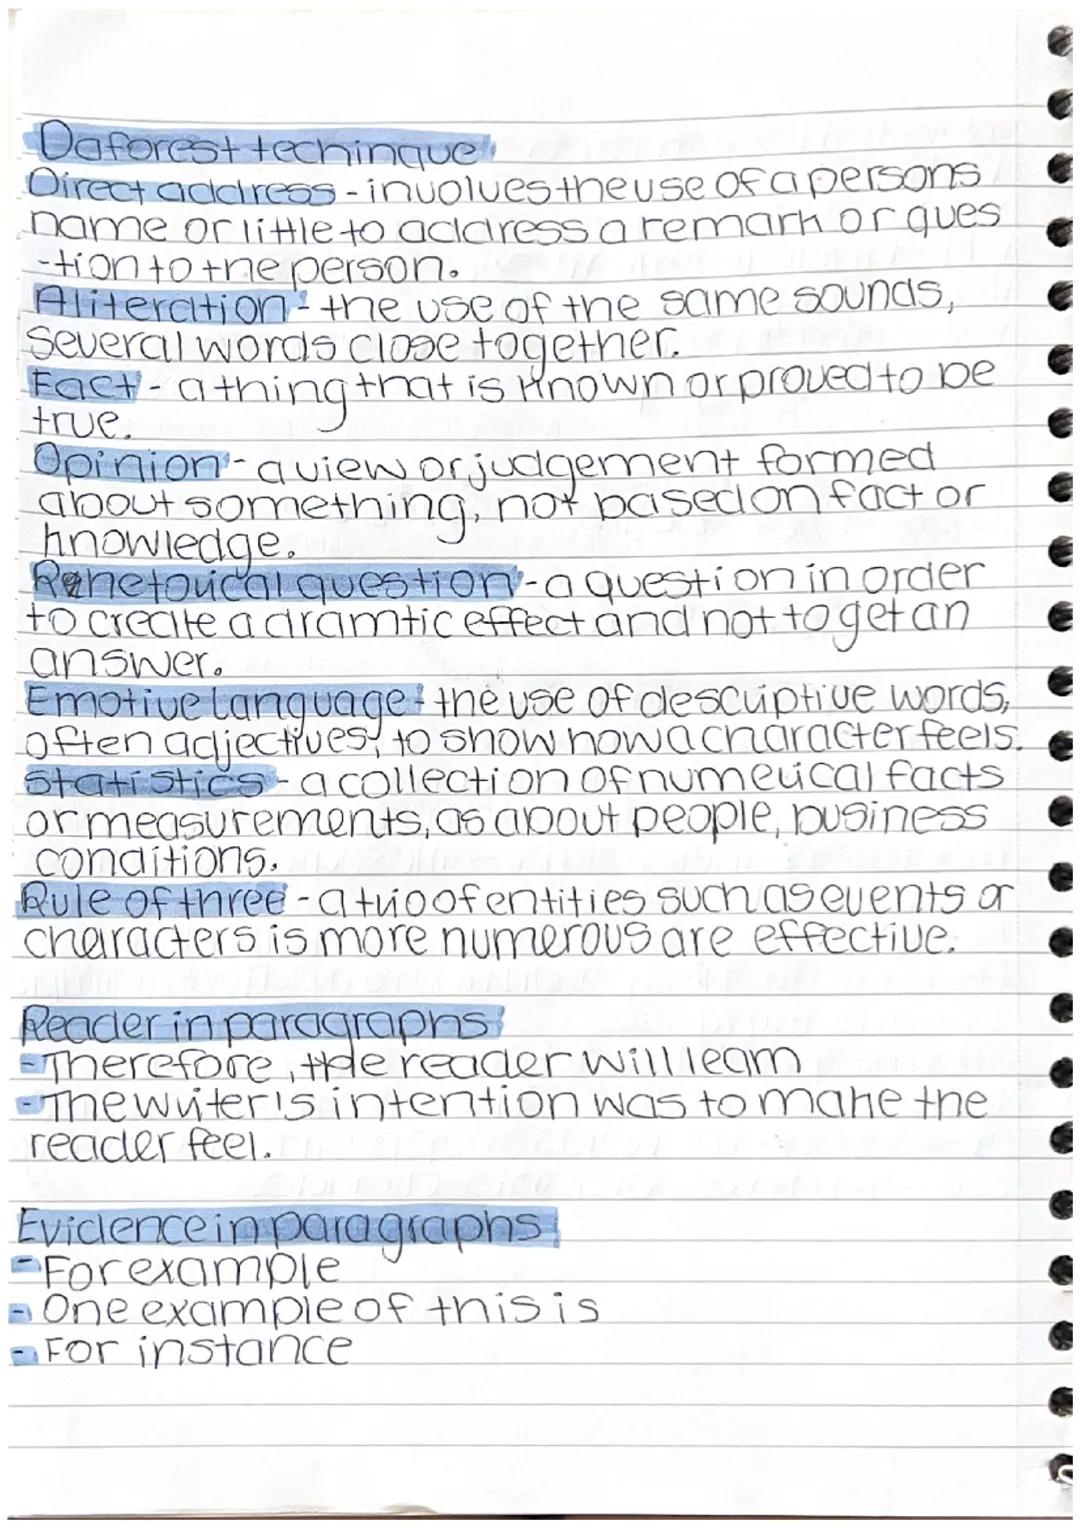 Daforest techinque
Direct address - involves the use of a persons
name or little to address a remark or ques
-tion to the person.
Aliteration - the use of the same sounds,
several words close together.
Fact - a thing that is known or proved to be
true.
Opinion - a view or judgement formed
about something, not based on fact or
knowledge.
Rhetorical question - a question in order
to create a dramtic effect and not to get an
answer.
Emotive language - the use of descriptive words,
often adjectives, to show how a character feels.
Statistics - a collection of numerical facts
or measurements, as about people, business
conditions.
Rule of three - a trio of entities such as events or
characters is more numerous are effective.
Reader in paragraphs
- Therefore, the reader will learn
- The writer's intention was to make the
reader feel.
Evidence in paragraphs
- For example
- One example of this is
- For instance